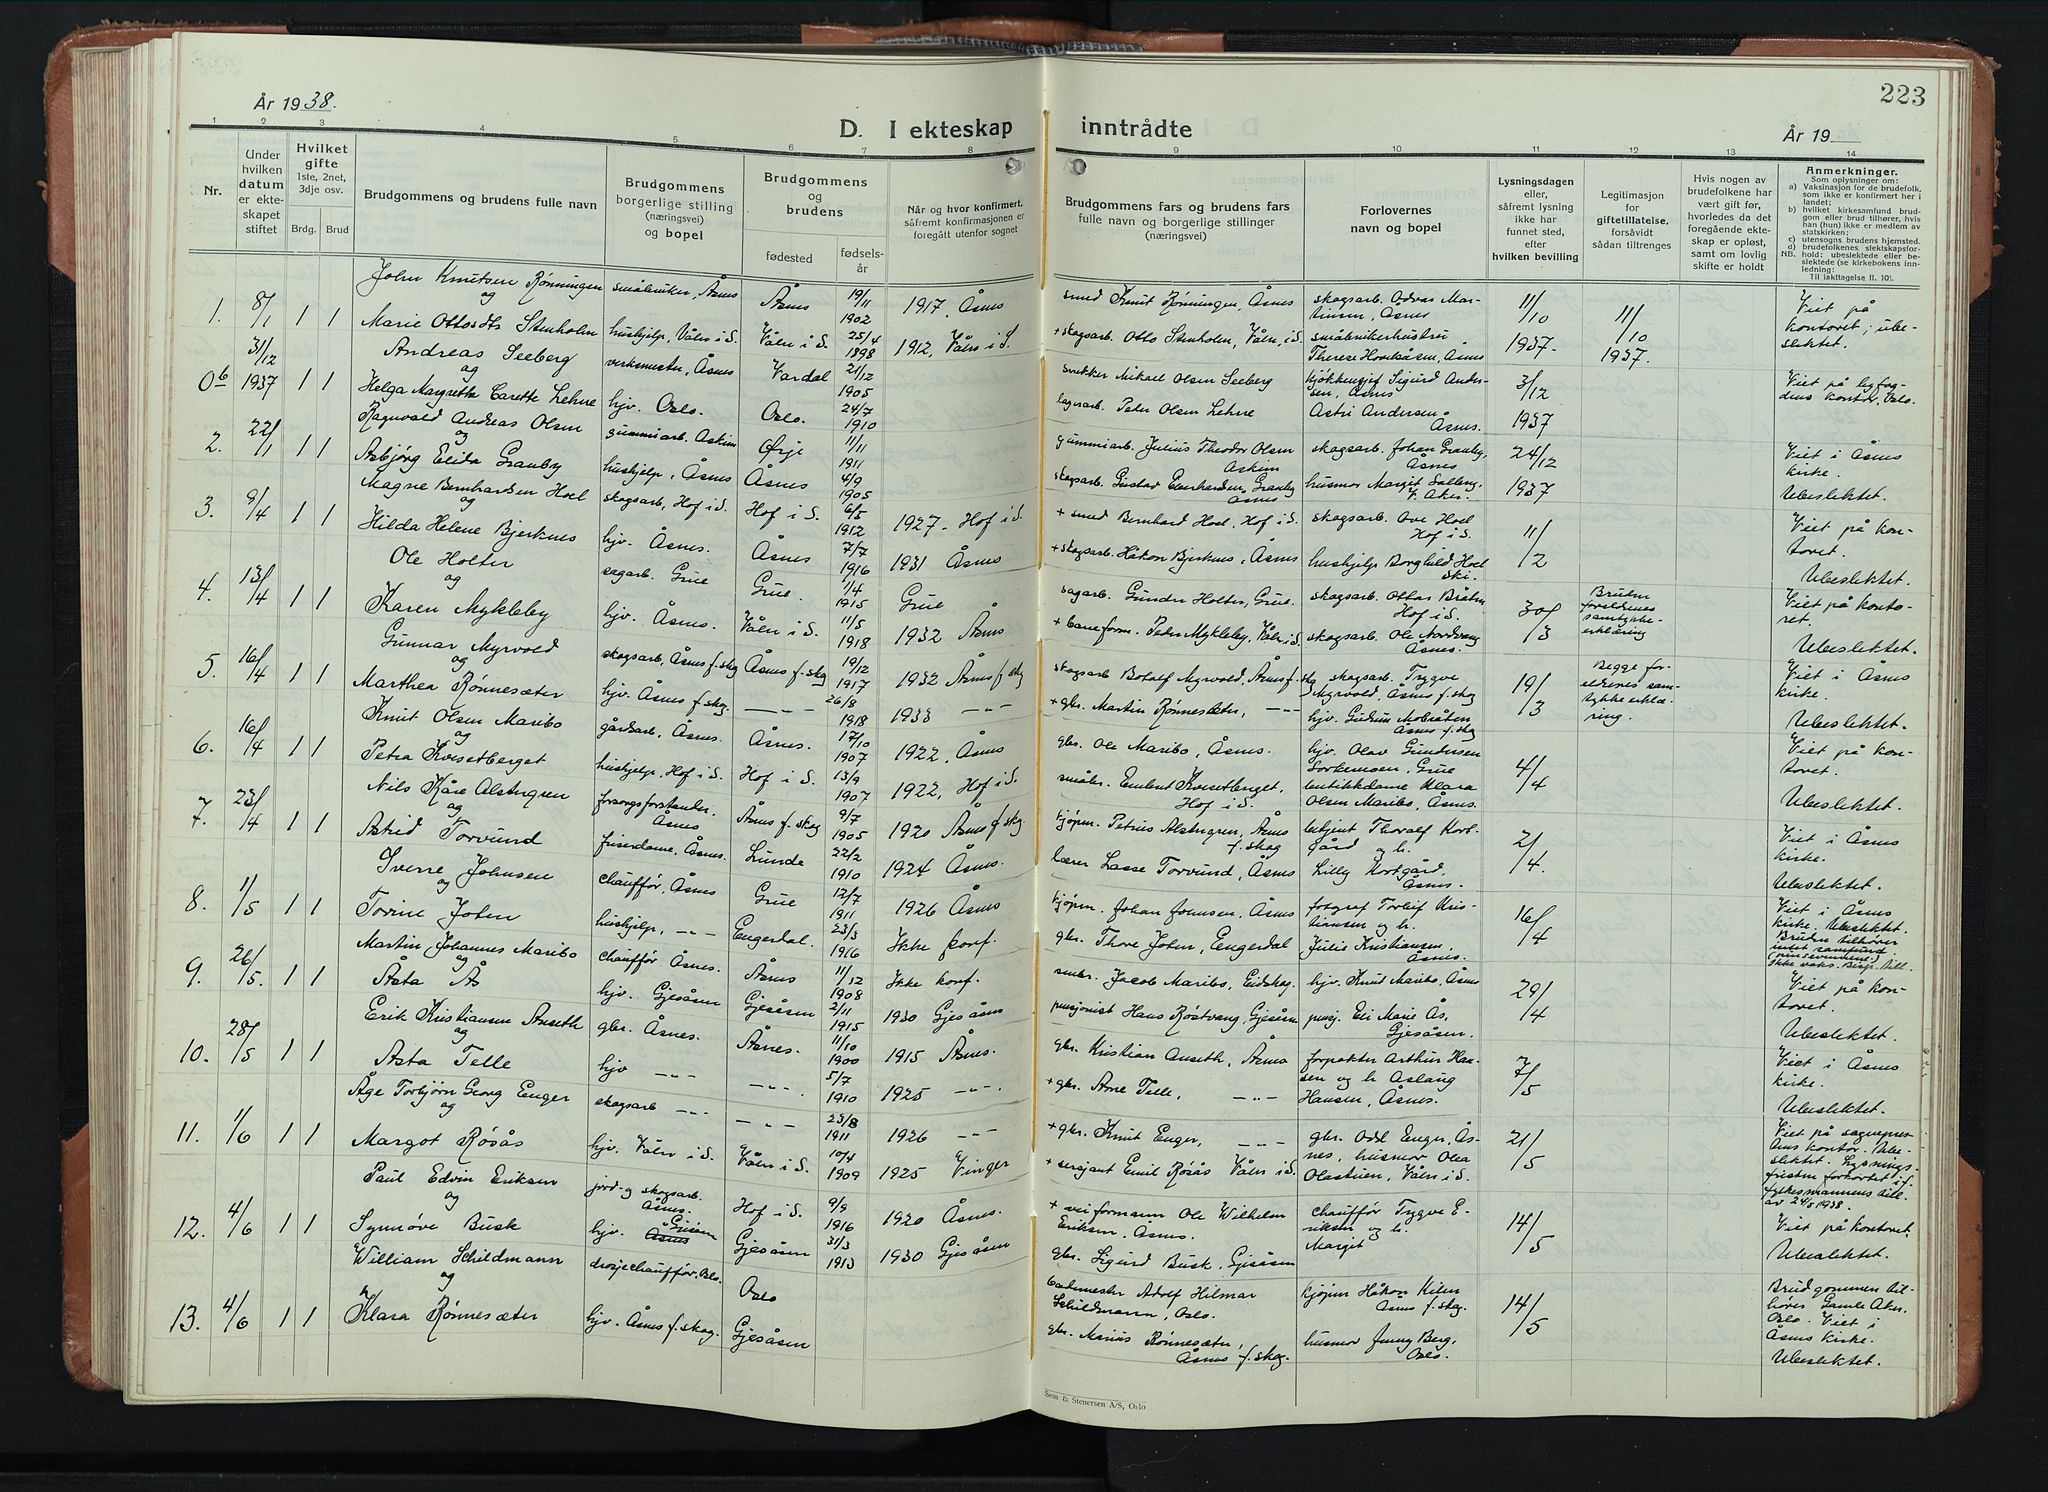 År 1938.
D. I ekteskap inntrådte
223
År 19
1 2 3 4 5 6 7 8 9 10 11 12 13 14
Nr.
Under hvilken datum er ekteskapet stiftet
Hvilket gifte 1ste, 2net, 3dje osv.
Brdg. Brud
Brudgommens og brudens fulle navn
Brudgommens borgerlige stilling (næringsvei) og bopel
Brudgommens og brudens
fødested
fødselsår
Når og hvor konfirmert, såfremt konfirmasjonen er foregått utenfor sognet
Brudgommens fars og brudens fars fulle navn og borgerlige stillinger (næringsvei)
Forlovernes navn og bopel
Lysningsdagen eller, såfremt lysning ikke har funnet sted, efter hvilken bevilling
Legitimasjon for giftetillatelse, forsåvidt sådan tiltrenges
Hvis nogen av brudefolkene har vært gift før, hvorledes da det foregående ekteskap er opløst, samt om lovlig skifte er holdt
Anmerkninger.
Som oplysninger om:
a) Vaksinasjon for de brudefolk, som ikke er konfirmert her i landet;
b) hvilket kirkesamfund brudgom eller brud tilhører, hvis han (hun) ikke er medlem av statskirken;
c) utensogns brudens hjemsted.
d) brudefolkenes slektskapsforhold: ubeslektede eller beslektede (se kirkebokens innledning:
NB. Til iakttagelse II. 10).
1. 8/1 1 1 John Knutsen Rønningen småbruker, Åsnes Åsnes 19/11 1902 1917, Åsnes smed Knut Rønningen, Åsnes skogsarb. Odvar Martinsen, Åsnes 11/10 1937. 11/10 1937. Viet på kontoret; ubeslektet.
og
Marie Ottosdtr Stenholm hushjelp, Våler i S. Våler i S. 25/4 1898 1912, Våler i S. + skogsarb. Otto Stenholm, Våler i S. småbrukerhustru Therese
0b 31/12 1937 1 1 Andreas Seeberg verksmester, Åsnes Vardal 21/12 1905 snekker Mikael Olsen Seeberg Sigurd Andersen, Åsnes 3/12 1937 Viet på byfogdens kontor, Oslo.
og
Helga Margrethe Carette Lehne hjv. Oslo. Oslo. 24/7 1910 lagerarb. Peter Olsen Lehne Astri Andersen Åsnes.
2. 22/1 1 1 Ragnvald Andreas Olsen gummiarb. Askim Ørje 11/11 1911 gummiarb. Julius Theodor Olsen Askim skogsarb. Johan Granby, Åsnes 24/12 1937 Viet i Åsnes kirke. Ubeslektet.
og
Asbjørg Elida Granby hushjelp, Åsnes Åsnes 4/9 1905 skogsarb. Gustav Eberhardsen Granby Åsnes husmor Margit
3. 9/4 1 1 Magne Bernhardsen Hoel skogsarb, Hof i S. Hof i S. 6/5 1912 1927, Hof i S + smed Bernhard Hoel, Hof i S. skogsarb. Ove Hoel Hof i S. 11/2 Viet på kontoret. Ubeslektet.
og
Hilda Helene Bjerknes hjv. Åsnes. Åsnes 7/7 1916 1931 Åsnes + skogsarb. Håkon Bjerknes, Åsnes hushjelp Borghild Hoel Ski.
4. 13/4 1 1 Ole Holter sagarb. Grue Grue. 1/4 1915 Grue sagarb. Gunder Holter, Grue. skogsarb. Ottar Bråten Hof i S. 30/3 Brudens foreldrenes samtykkeerklæring Viet på kontoret. Ubeslektet.
og
Karen Mykleby hjv. Åsnes. Våler i S. 11/5 1918 1932 Åsnes + baneform. Peder Mykleby, Våler i S skogsarb. Ole Nordvang Åsnes.
5. 16/4 1 1 Gunnar Myrvold skogsarb, Åsnes f. skog Åsnes f. skog 19/12 1917 1932 Åsnes f. skg skogsarb Botolf Myrvold, Åsnes f. skg skogsarb. Trygve Myrvold, Åsnes f. skog 19/3 Begge foreldrenes samtykkeerklæring. Viet i Åsnes kirke. Ubeslektet.
og
Marthea Rønnesæter hjv. Åsnes f. skog. —"— 26/8 1918 1933 —"— + gbr. Martin Rønnesæter, —"— hjv. Gudrun Åsnes f. skog
6. 16/4 1 1 Knut Olsen Maribo gårdsarb, Åsnes. Åsnes. 17/10 1907 1922, Åsnes gbr. Ole Maribo, Åsnes. hjv. Olav Gundersen Sorkemoen, Grue 4/4 Viet på kontoret. Ubeslektet.
og
Petra Kvesetberget hushjelp, Hof i S. Hof i S. 13/9 1907 1922, Hof i S. småbr. Embret Kvesetberget, Hof i S. butikkdame Klara Olsen Maribo, Åsnes.
7. 23/4 1 1 Nils Kåre Alstergren forsorgsforstander, Åsnes Åsnes f. skog 9/7 1905 1920 Åsnes f. skg. kjøpm. Petrus Alstergren, Åsnes f. skog betjent Thoralf Kortgård og h. 2/4. Viet i Åsnes kirke. Ubeslektet.
og
Astrid Torvund friserdame, Åsnes. Lunde 22/2 1910 1924 Åsnes. lærer Lasse Torvund, Åsnes Lilly Kortgård, Åsnes.
8. 1/5 1 1 Sverre Johnsen chauffør, Åsnes Grue 12/7 1911 1926 Åsnes kjøpm. Johan Johnsen, Åsnes fotograf Torleif Kristiansen og h. 16/4 Viet i Åsnes kirke. Ubeslektet. Bruden tilhører intet samfund (pinsevennene). Ikke vaks.
og
Torine Joten hushjelp, —"— Engerdal. 23/3 1916 Ikke konf. gbr. Thore Joten, Engerdal Julie Kristiansen, Åsnes.
9. 26/5. 1 1 Martin Johannes Maribo chauffør. Åsnes. Åsnes 11/12 1908 Ikke konf. småbr. Jacob Maribo, Eidskog. hjv. Knut Maribo, Åsnes 29/4 Viet på kontoret. Ubeslektet.
og
Åsta Ås hjv. Gjesåsen Gjesåsen 2/11 1915 1930 Gjesåsen pensjonist Hans Røstvang, Gjesåsen pensj. Eli Marie Ås, Gjesåsen.
10. 28/5 1 1 Erik Kristiansen Anseth gbr. Åsnes. Åsnes. 11/10 1900 1915 Åsnes. gbr. Kristian Anseth, Åsnes forpakter Arthur Hansen og h. Aslaug Hansen, Åsnes. 7/5 Viet i Åsnes kirke. Ubeslektet.
og
Asta Telle hjv —"— —"—. 5/7 1910 1925 —"—. + gbr. Arne Telle, —"—
11. 1/6 1 1 Åge Torbjørn Georg Enger skogsarb —"— —"— 23/8 1911 1926 —"— + gbr. Knut Enger, —"— gbr. Odd Enger, Åsnes, husmor Olea Olastuen, Våler i S. 21/5 Viet på sogneprestens kontor. Ubeslektet. Lysningsfristen forkortet i f. fylkesmannens till. av 24/5 1938.
og
Margot Røsås hjv. Våler i S. Våler i S. 10/4 1909 1925 Vinger + sersjant Emil Røsås Våler i S.
12. 4/6 1 1 Paul Edvin Eriksen jord- og skogsarb. Åsnes. Hof i S. 9/9 1916 1920 Åsnes. + veiformann Ole Wilhelm Eriksen, Åsnes. chauffør Trygve Eriksen og h. Margit 14/5 Viet på kontoret. Ubeslektet.
og
Synnøve Busk hjv. Gjesåsen Åsnes Gjesåsen 31/3 1913 1930 Gjesåsen gbr. Sigurd Busk, Gjesåsen
13. 4/6 1 1 William Schildmann drosjechauffør, Oslo. Oslo Bademester Adolf Hilmar Schildmann, Oslo. kjøpm Håkon Kilen Åsnes f. skog. 14/5 Brudgommen tilhører Gamle Aker, Oslo. Viet i Åsnes kirke. Ubeslektet.
og
Klara Rønnesæter hjv. Åsnes f. skog. Gjesåsen gbr. Marius Rønnesæter, Åsnes f. skog. husmor Jenny Berg, Oslo.
Sem & Stenersen A/S, Oslo